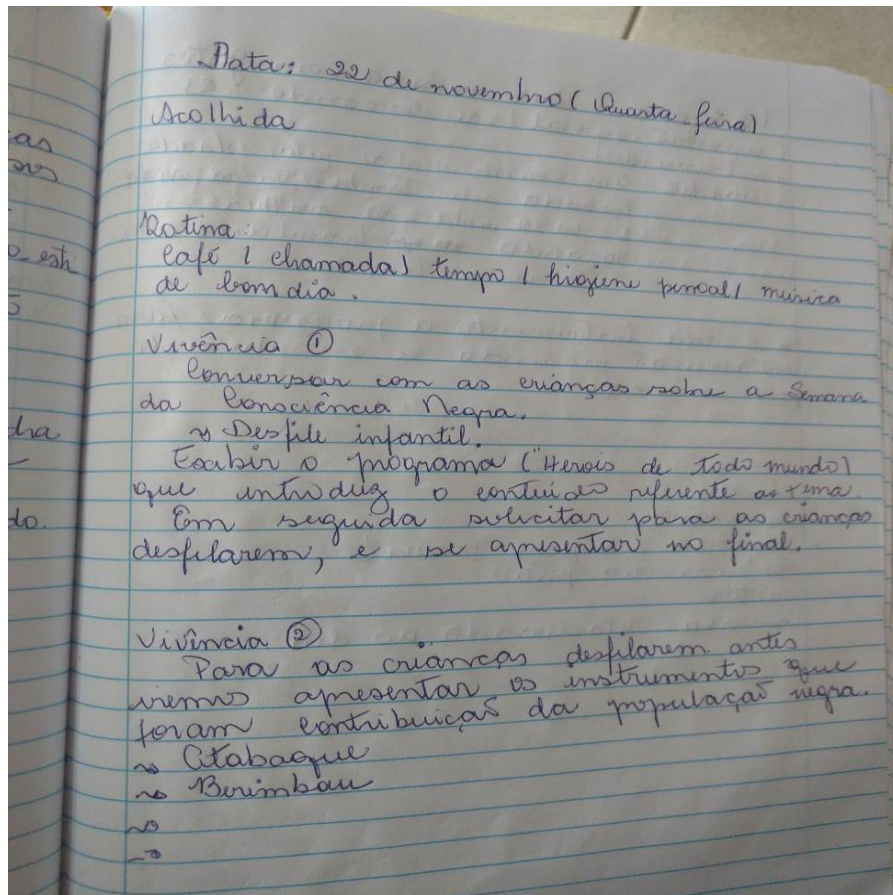 Data: 22 de novembro (Quarta feira)
Acolhida
Rotina:
Café / chamada / tempo / higiene pessoal / música
de bom dia.
Vivência ①
Conversar com as crianças sobre a Semana
da Consciência Negra.
→ Desfile infantil.
Exibir o programa ("Heróis de todo mundo)
que introduz o conteúdo referente ao tema.
Em seguida solicitar para as crianças
desfilarem, e se apresentar no final.
Vivência ②
Para as crianças desfilarem antes
iremos apresentar os instrumentos que
foram contribuição da população negra.
→ Atabaque
→ Berimbau
→
→
as
do.